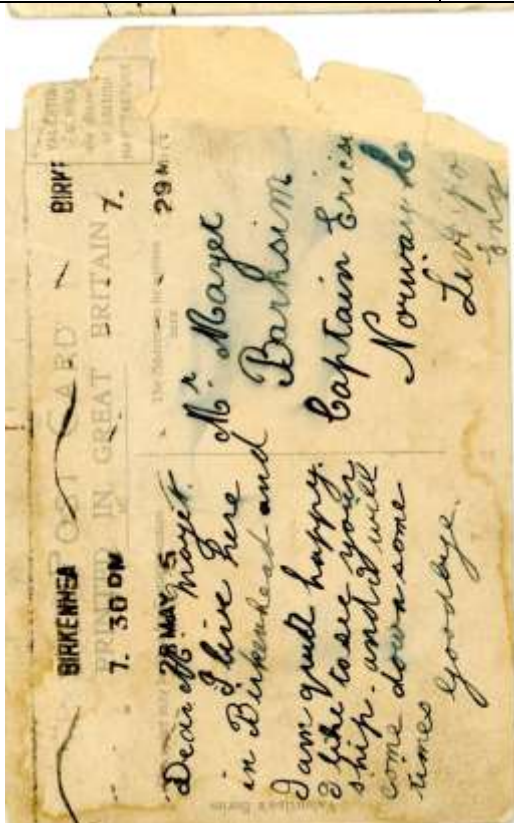 POST CARD
PRINTED IN GREAT BRITAIN
BIRKENHEA
7. 30 PM
28 MAY 5
BIRK
7.
29 M
The Address to be Written
Dear Mr Mayet.
I live here
in Birkenhead and
I am quit happy.
I like to see your
ship. and I will
come down some
times
Goodbye.
Mr Mayet
Barksim
Captain Erics
Norway
Liv'po
Eng
Valentine's Series